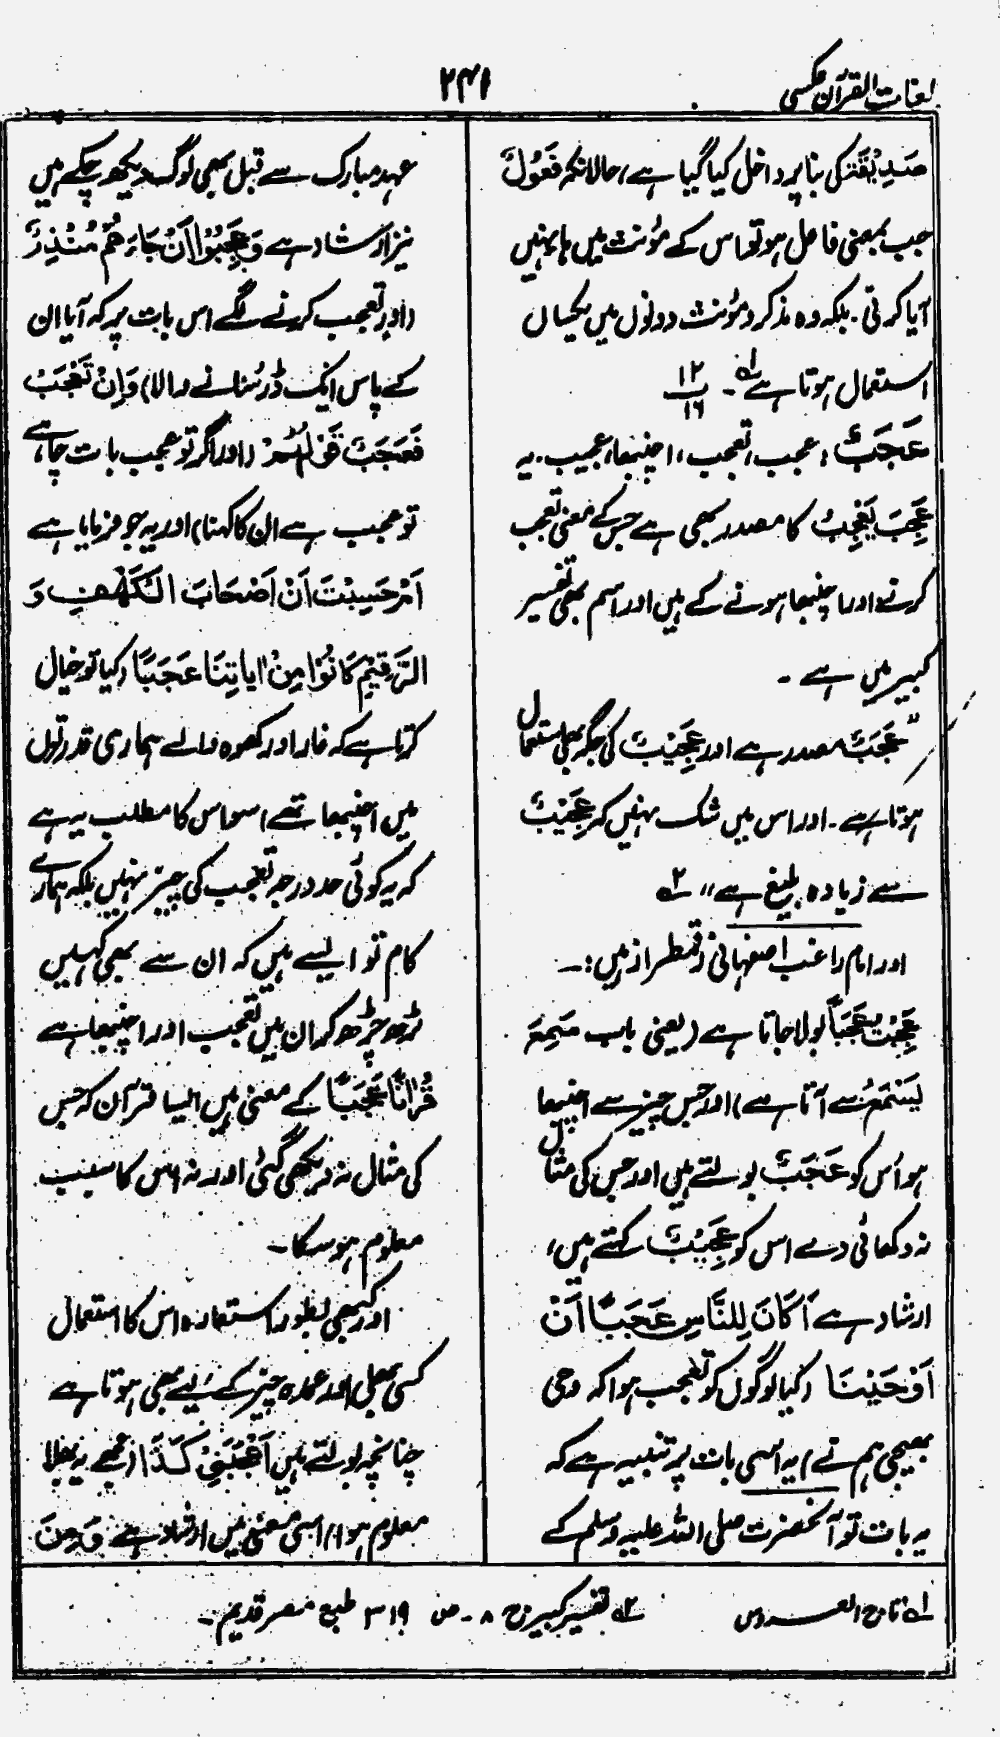 لغات القرآن عکسی
۲۴۱
صَدِیْقَۃٌ کی بنا پر داخل کیا گیا ہے، حالانکہ فَعُوْلٌ
جب بمعنی فاعل ہو تو اس کے مؤنث میں ہا، نہیں
آیا کرتی۔ بلکہ وہ مذکر و مؤنث دونوں میں یکساں
استعمال ہوتا ہے لہ۔ ۱۲/۱۶
عَجَبٌ : عجب، تعجب، اچنبھا، عجیب۔ یہ
عَجِبَ یَعْجَبُ کا مصدر بھی ہے جس کے معنی تعجب
کرنے اور اچنبھا ہونے کے ہیں اور اسم بھی تفسیر
کبیر میں ہے۔
"عَجَبٌ مصدر ہے اور عَجِیْبٌ کی جگہ بھی استعمال
ہوتا ہے۔ اور اس میں شک نہیں کہ عَجِیْبٌ
سے زیادہ بلیغ ہے" ۲ہ
اور امام راغب اصفہانی رقمطراز ہیں:۔
عَجِبْتُ عَجَبًا بولا جاتا ہے (یعنی باب سَمِعَ
یَسْمَعُ سے آتا ہے) اور جس چیز سے اچنبھا
ہو اُس کو عَجَبٌ بولتے ہیں اور جس کی مثال
نہ دکھائی دے اس کو عَجِیْبٌ کہتے ہیں،
ارشاد ہے اَکَانَ لِلنَّاسِ عَجَبًا اَنْ
اَوْحَیْنَا (کیا لوگوں کو تعجب ہوا کہ وحی
بھیجی ہم نے) یہ اسی بات پر تنبیہ ہے کہ
یہ بات تو آنحضرت صلی اللہ علیہ وسلم کے
عہد مبارک سے قبل بھی لوگ دیکھ چکے ہیں
نیز ارشاد ہے وَعَجِبُوْا اَنْ جَاءَ ھُمْ مُنْذِرٌ
(اور تعجب کرنے لگے اس بات پر کہ آیا ان
کے پاس ایک ڈر سُنانے والا) وَاِنْ تَعْجَبْ
فَعَجَبٌ قَوْلُھُمْ (اور اگر تو عجب بات چاہے
تو عجب ہے ان کا کہنا) اور یہ جو فرمایا ہے
اَمْ حَسِبْتَ اَنَّ اَصْحَابَ الْکَھْفِ وَ
الرَّقِیْمِ کَانُوْا مِنْ اٰیَاتِنَا عَجَبًا (کیا تو خیال
کرتا ہے کہ غار اور کھوہ والے ہماری قدرتوں
میں اچنبھا تھے) سو اس کا مطلب یہ ہے
کہ یہ کوئی حد درجہ تعجب کی چیز نہیں بلکہ ہمارے
کام تو ایسے ہیں کہ ان سے بھی کہیں
بڑھ چڑھ کر ان میں تعجب اور اچنبھا ہے
قُرْاٰنًا عَجَبًا کے معنی ہیں ایسا قرآن کہ جس
کی مثال نہ دیکھی گئی اور نہ اس کا سبب
معلوم ہو سکا۔
اور کبھی بطور استعارہ اس کا استعمال
کسی بھلی اور عمدہ چیز کے لیے بھی ہوتا ہے
چنانچہ بولتے ہیں اَعْجَبَنِیْ کَذَا (مجھے یہ بھلا
معلوم ہوا) اسی معنی میں ارشاد ہے وَمِنَ
لہ تاج العروس ۲ہ تفسیر کبیر ج ۸۔ ص ۳۱۹ طبع مصر قدیم۔